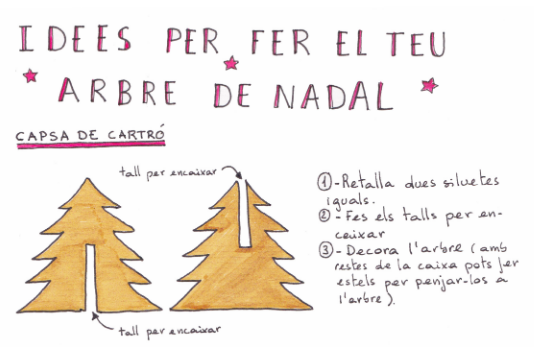 IDEES PER FER EL TEU
ARBRE DE NADAL
CAPSA DE CARTRÓ
tall per encaixar
tall per encaixar
1-Retalla dues siluetes
iguals.
2-Fes els talls per en-
caixar
3-Decora l'arbre (amb
restes de la caixa pots fer
estels per penjar-los a
l'arbre).